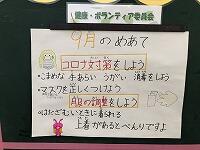 健康・ボランティア委員会
9月のめあて
コロナ対策をしよう
・こまめな手あらい うがい 消毒をしよう
・マスクを正しくつけよう
服の調整をしよう
・はださむいときに着られる
上着があるとべんりですよ